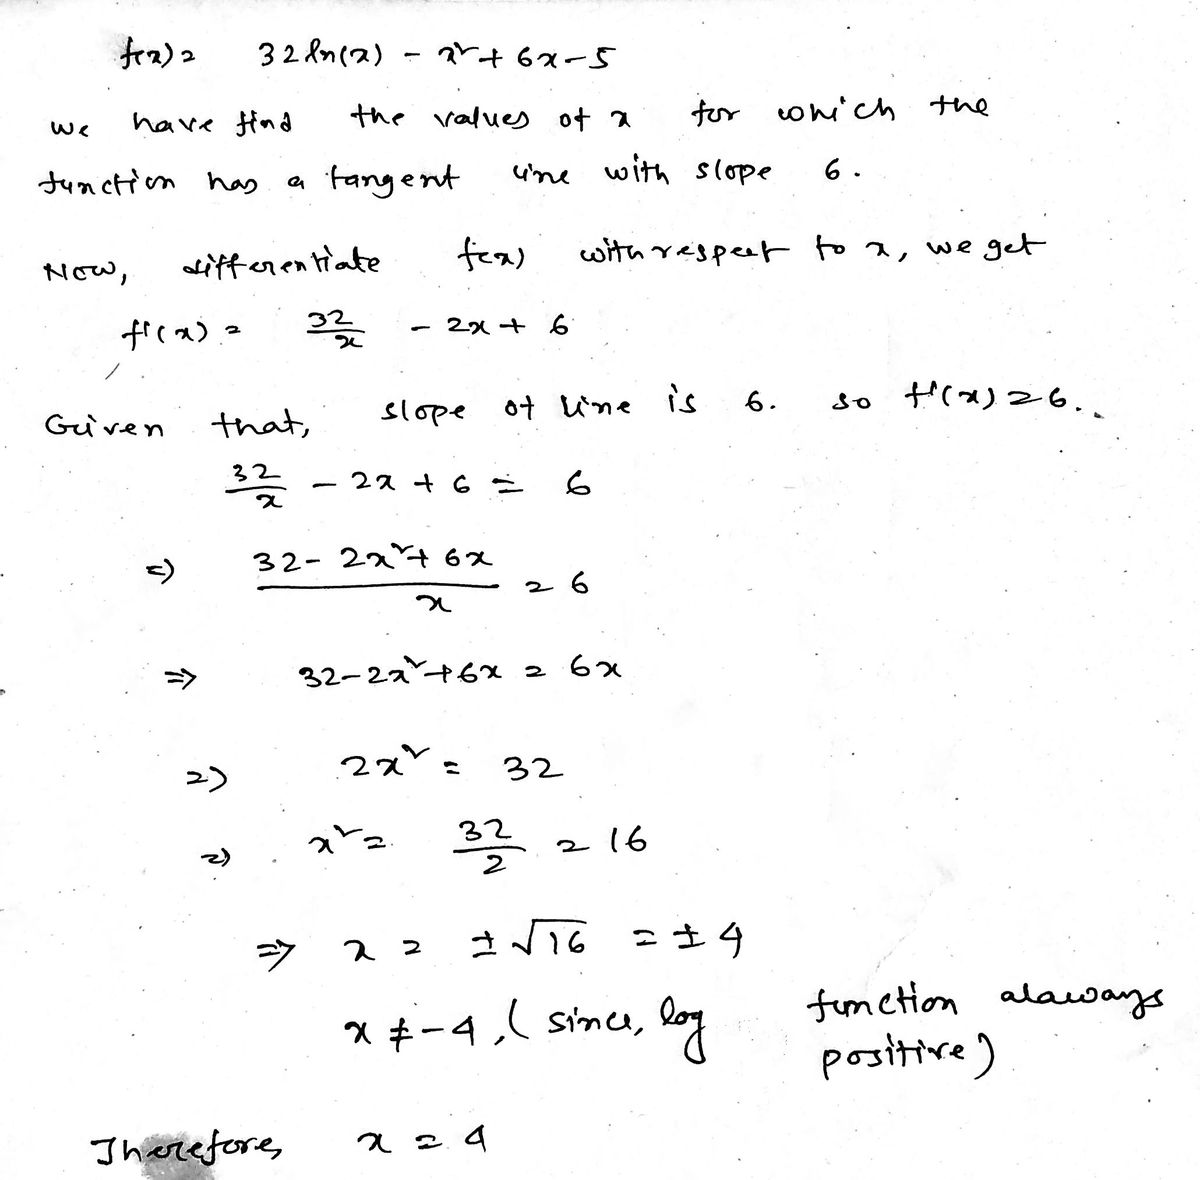 f(x) = 32 ln(x) - x² + 6x - 5
we have find the values of x for which the
function has a tangent line with slope 6.
Now, differentiate f(x) with respect to x, we get
f'(x) = 32/x - 2x + 6
Given that, slope of line is 6. so f'(x) = 6.
32/x - 2x + 6 = 6
=> (32 - 2x² + 6x)/x = 6
=> 32 - 2x² + 6x = 6x
=> 2x² = 32
=> x² = 32/2 = 16
=> x = ± √16 = ± 4
x ≠ -4, (since, log function alaways
positive)
Therefore, x = 4